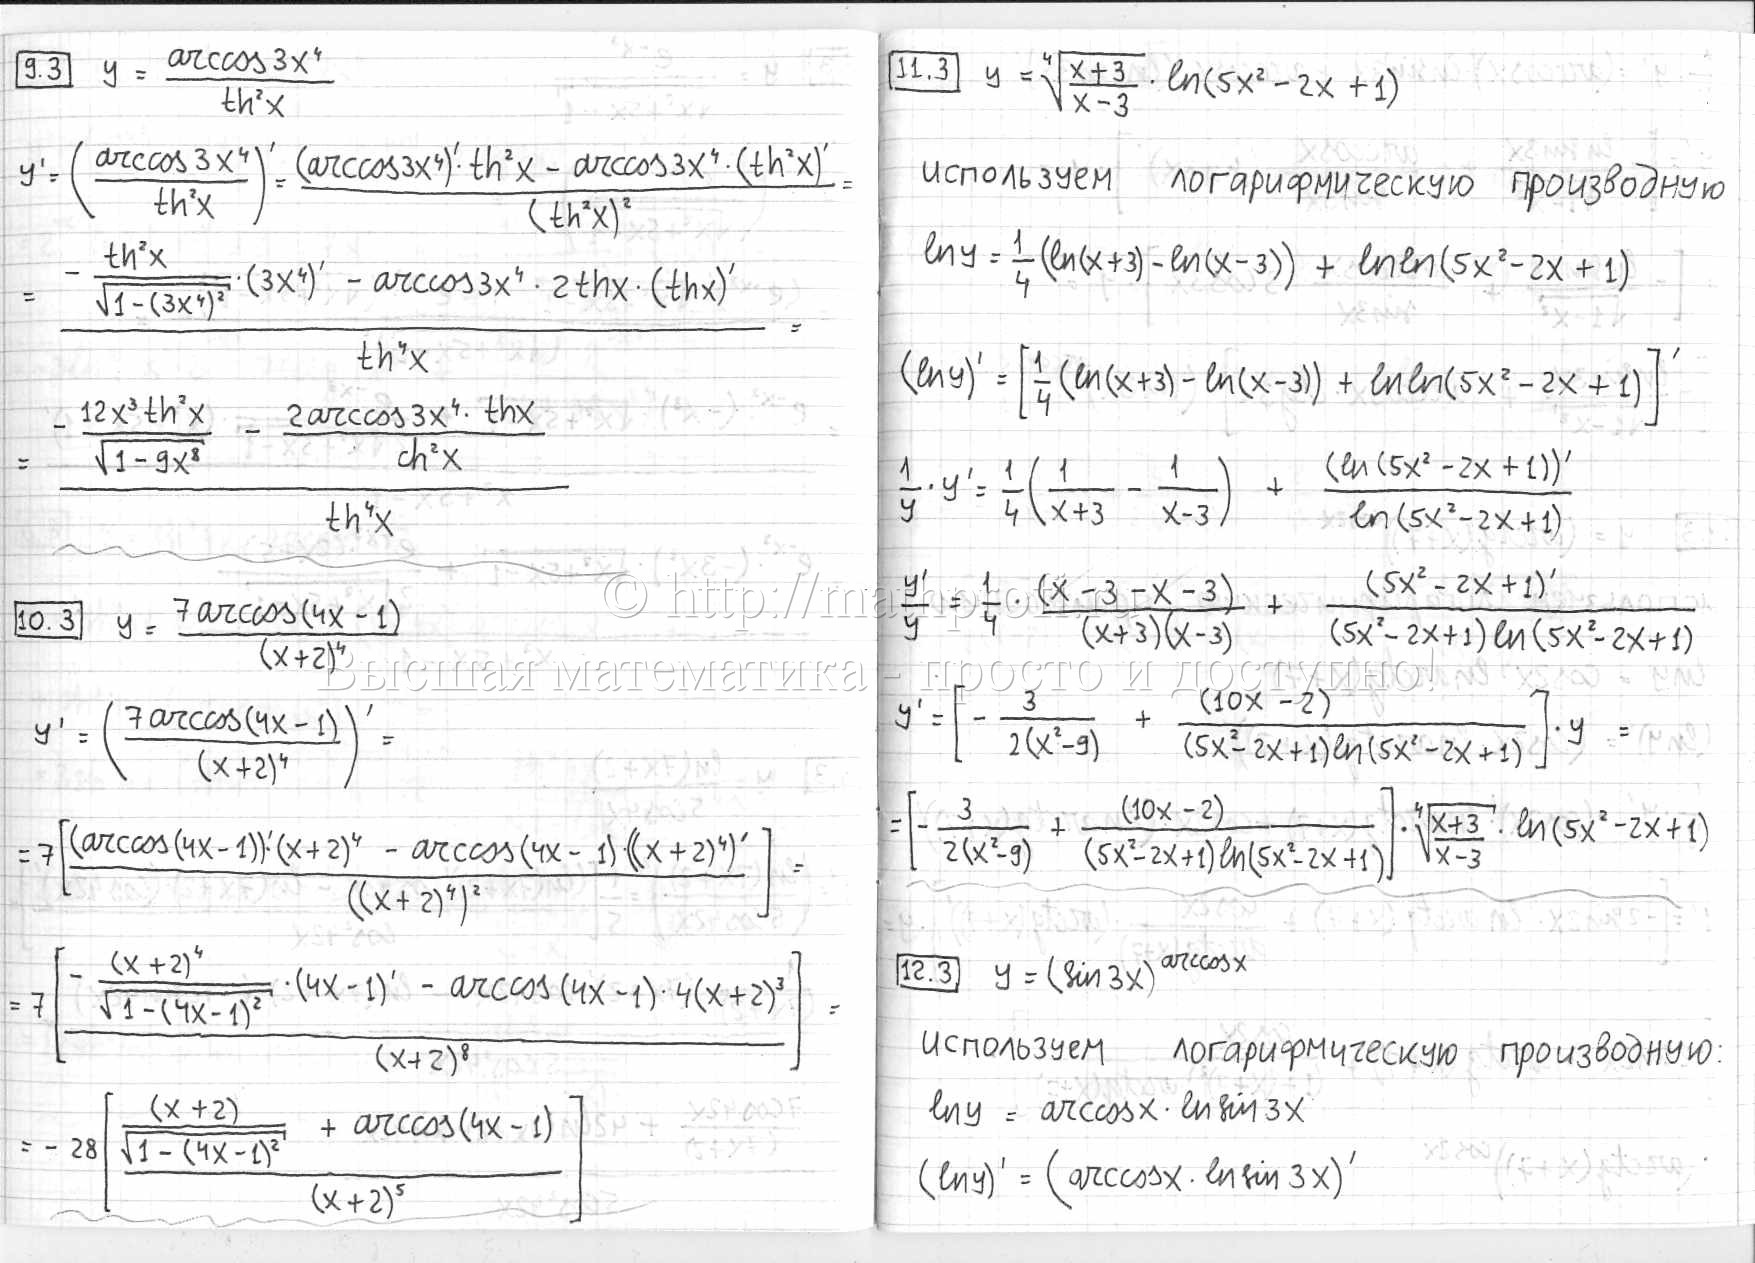 9.3 y = arccos3x⁴ / th²x
y' = (arccos3x⁴ / th²x)' = ((arccos3x⁴)'·th²x − arccos3x⁴·(th²x)') / (th²x)² =
= (− th²x / √(1−(3x⁴)²) · (3x⁴)' − arccos3x⁴ · 2thx · (thx)') / th⁴x =
= (− 12x³th²x / √(1−9x⁸) − 2arccos3x⁴·thx / ch²x) / th⁴x
10.3 y = 7arccos(4x−1) / (x+2)⁴
y' = (7arccos(4x−1) / (x+2)⁴)' =
= 7[((arccos(4x−1))'·(x+2)⁴ − arccos(4x−1)·((x+2)⁴)') / ((x+2)⁴)²] =
= 7[(− (x+2)⁴ / √(1−(4x−1)²) · (4x−1)' − arccos(4x−1)·4(x+2)³) / (x+2)⁸] =
= −28[((x+2) / √(1−(4x−1)²) + arccos(4x−1)) / (x+2)⁵]
11.3 y = ⁴√((x+3)/(x−3)) · ln(5x²−2x+1)
используем логарифмическую производную
lny = 1/4 (ln(x+3)−ln(x−3)) + lnln(5x²−2x+1)
(lny)' = [1/4 (ln(x+3)−ln(x−3)) + lnln(5x²−2x+1)]'
1/y · y' = 1/4 (1/(x+3) − 1/(x−3)) + (ln(5x²−2x+1))' / ln(5x²−2x+1)
y'/y = 1/4 · (x−3−x−3) / (x+3)(x−3) + (5x²−2x+1)' / (5x²−2x+1)ln(5x²−2x+1)
y' = [− 3 / 2(x²−9) + (10x−2) / (5x²−2x+1)ln(5x²−2x+1)]·y =
= [− 3 / 2(x²−9) + (10x−2) / (5x²−2x+1)ln(5x²−2x+1)] · ⁴√((x+3)/(x−3)) · ln(5x²−2x+1)
12.3 y = (sin3x)^arccosx
Используем логарифмическую производную:
lny = arccosx·lnsin3x
(lny)' = (arccosx·lnsin3x)'
© http://mathprofi.ru
Высшая математика - просто и доступно!